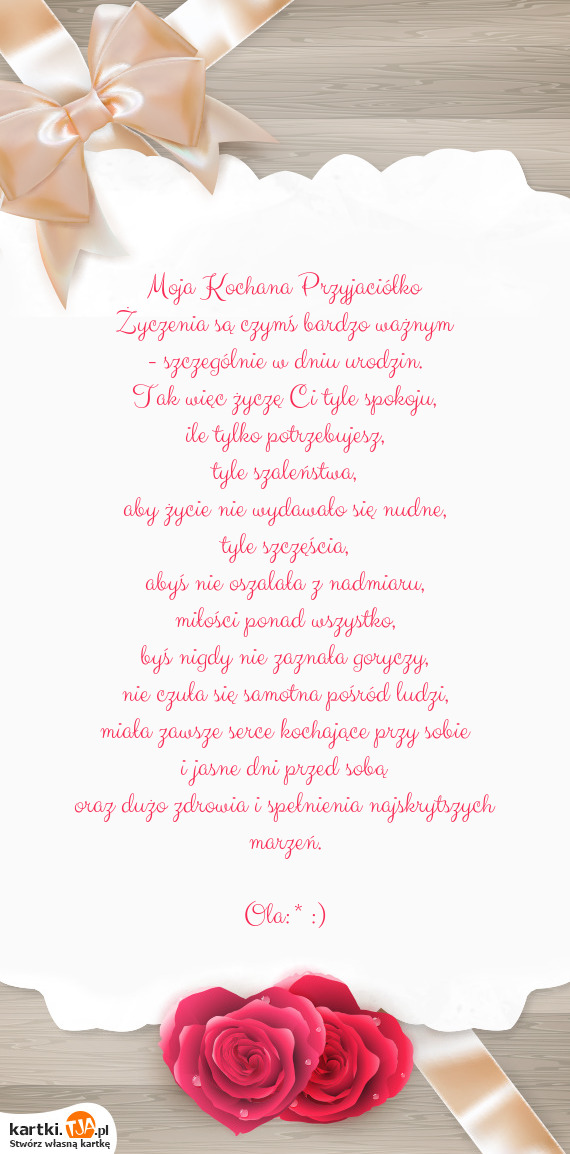 Moja Kochana Przyjaciółko
Życzenia są czymś bardzo ważnym
- szczególnie w dniu urodzin.
Tak więc życzę Ci tyle spokoju,
ile tylko potrzebujesz,
tyle szaleństwa,
aby życie nie wydawało się nudne,
tyle szczęścia,
abyś nie oszalała z nadmiaru,
miłości ponad wszystko,
byś nigdy nie zaznała goryczy,
nie czuła się samotna pośród ludzi,
miała zawsze serce kochające przy sobie
i jasne dni przed sobą
oraz dużo zdrowia i spełnienia najskrytszych
marzeń.
Ola:* :)
kartki.TJA.pl
Stwórz własną kartkę